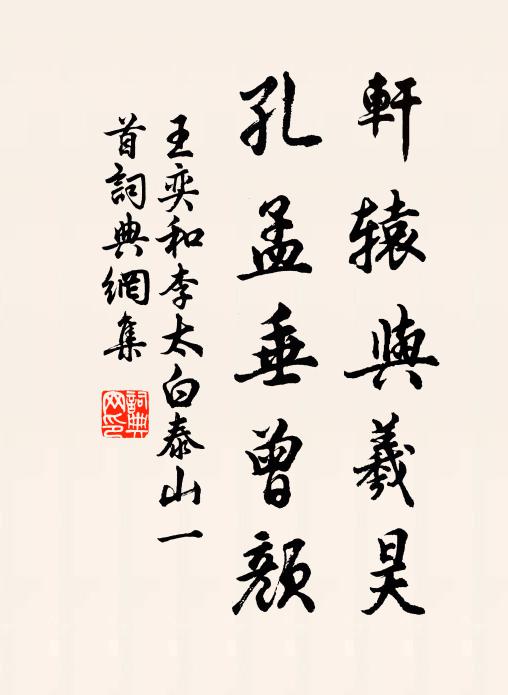 軒辕與羲昊
孔孟垂曾顔
王奕和李太白泰山一
首詞典網集
詞典网印